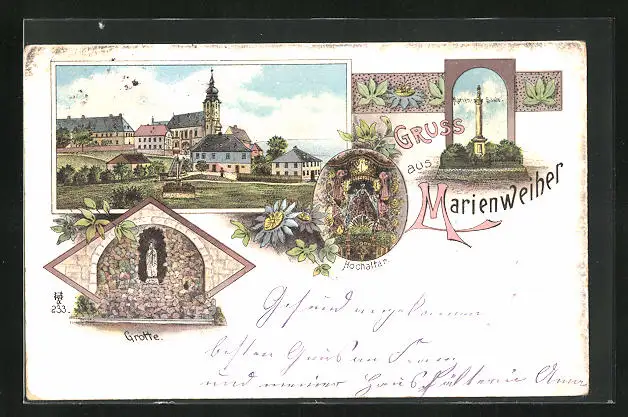 Mariensäule
GRUSS
aus
Marienweiher
Hochaltar.
233.
Grotte.
Gesund angekommen
besten Gruß an
und meiner Haushälterin Anna